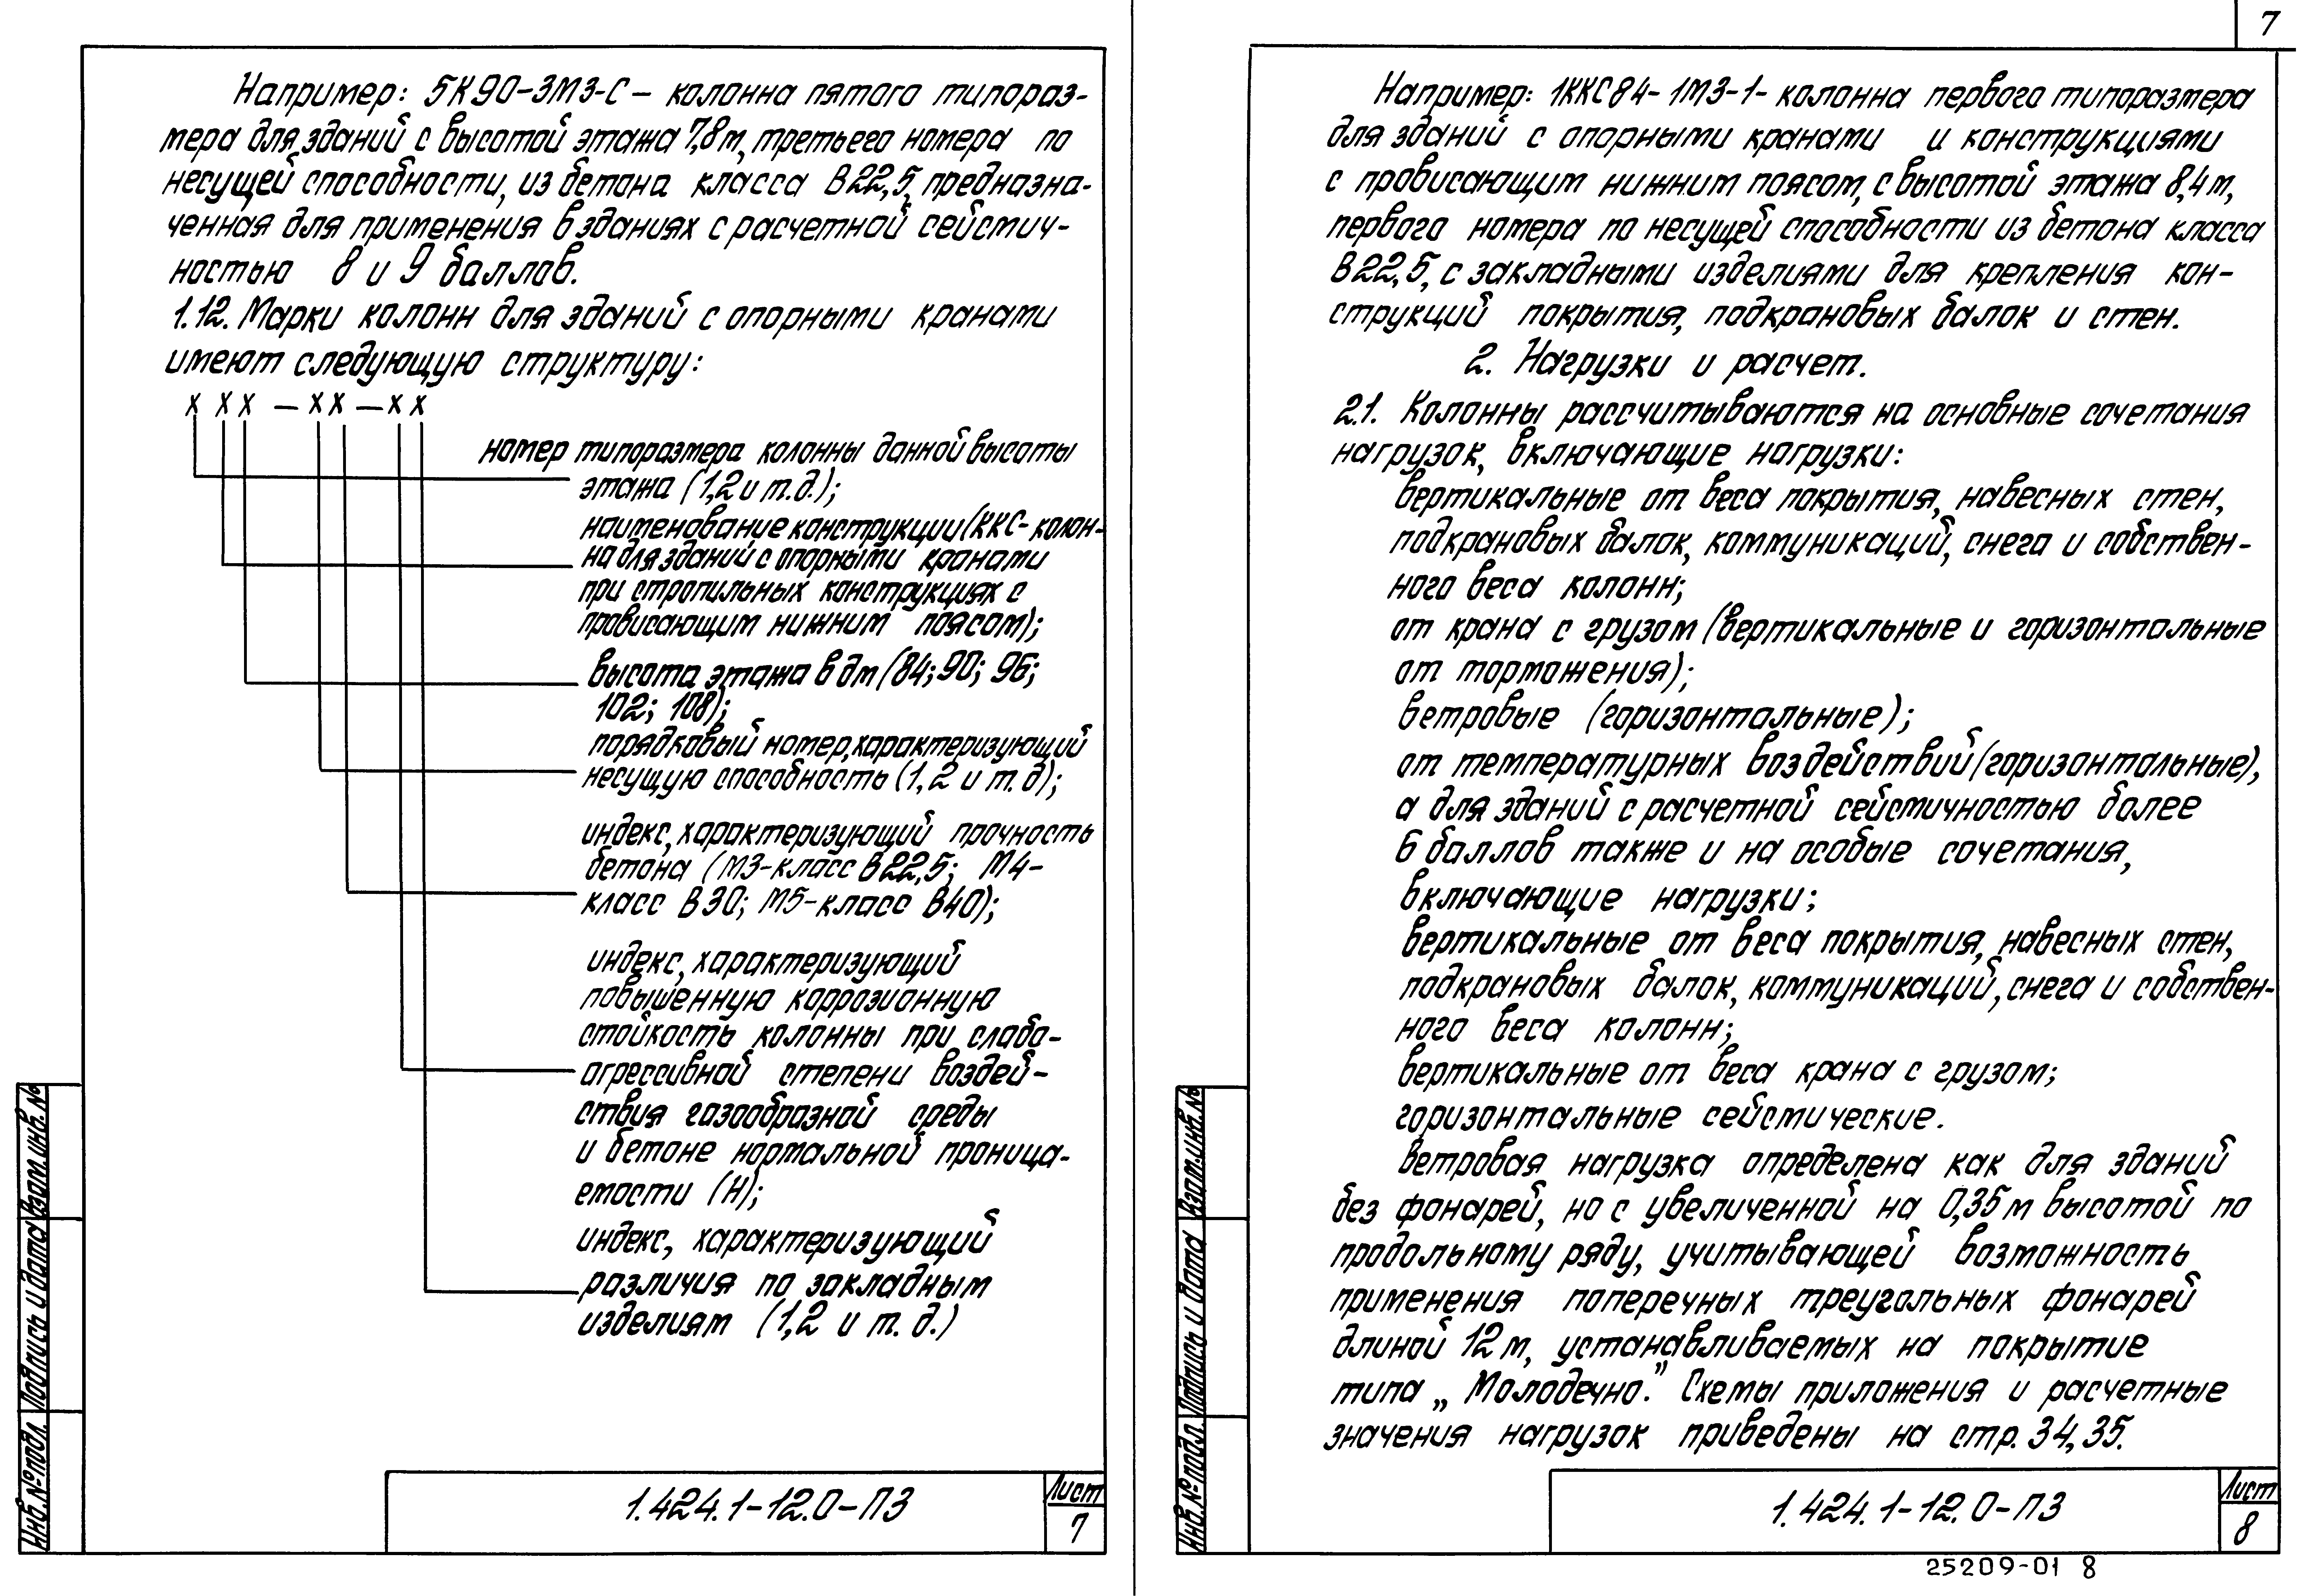 Например: 5К90-3М3-С – колонна пятого типораз-
мера для зданий с высотой этажа 7,8м, третьего номера по
несущей способности, из бетона класса В22,5, предназна-
ченная для применения в зданиях с расчетной сейсмич-
ностью 8 и 9 баллов.
1.12. Марки колонн для зданий с опорными кранами
имеют следующую структуру:
х х х – х х – х х
номер типоразмера колонны данной высоты
этажа (1,2 и т.д.);
наименование конструкции (ККС- колон-
на для зданий с опорными кранами
при стропильных конструкциях с
провисающим нижним поясом);
высота этажа в дм (84; 90; 96;
102; 108);
порядковый номер, характеризующий
несущую способность (1, 2 и т. д);
индекс, характеризующий прочность
бетона (М3-класс В22,5; М4-
класс В30; М5-класс В40);
индекс, характеризующий
повышенную коррозионную
стойкость колонны при слабо-
агрессивной степени воздей-
ствия газообразной среды
и бетоне нормальной проница-
емости (Н);
индекс, характеризующий
различия по закладным
изделиям (1,2 и т. д.)
Инв.№ подл. Подпись и дата Взам.инв.№
1.424.1-12.0-ПЗ
Лист
7
7
Например: 1ККС84-1М3-1- колонна первого типоразмера
для зданий с опорными кранами и конструкциями
с провисающим нижним поясом, с высотой этажа 8,4м,
первого номера по несущей способности из бетона класса
В22,5, с закладными изделиями для крепления кон-
струкций покрытия, подкрановых балок и стен.
2. Нагрузки и расчет.
2.1. Колонны рассчитываются на основные сочетания
нагрузок, включающие нагрузки:
вертикальные от веса покрытия, навесных стен,
подкрановых балок, коммуникаций, снега и собствен-
ного веса колонн;
от крана с грузом (вертикальные и горизонтальные
от торможения);
ветровые (горизонтальные);
от температурных воздействий (горизонтальные),
а для зданий с расчетной сейсмичностью более
6 баллов также и на особые сочетания,
включающие нагрузки;
вертикальные от веса покрытия, навесных стен,
подкрановых балок, коммуникаций, снега и собствен-
ного веса колонн;
вертикальные от веса крана с грузом;
горизонтальные сейсмические.
Ветровая нагрузка определена как для зданий
без фонарей, но с увеличенной на 0,35м высотой по
продольному ряду, учитывающей возможность
применения поперечных треугольных фонарей
длиной 12м, устанавливаемых на покрытие
типа „Молодечно." Схемы приложения и расчетные
значения нагрузок приведены на стр. 34, 35.
Инв.№ подл. Подпись и дата Взам.инв.№
1.424.1-12.0-ПЗ
Лист
8
25209-01 8